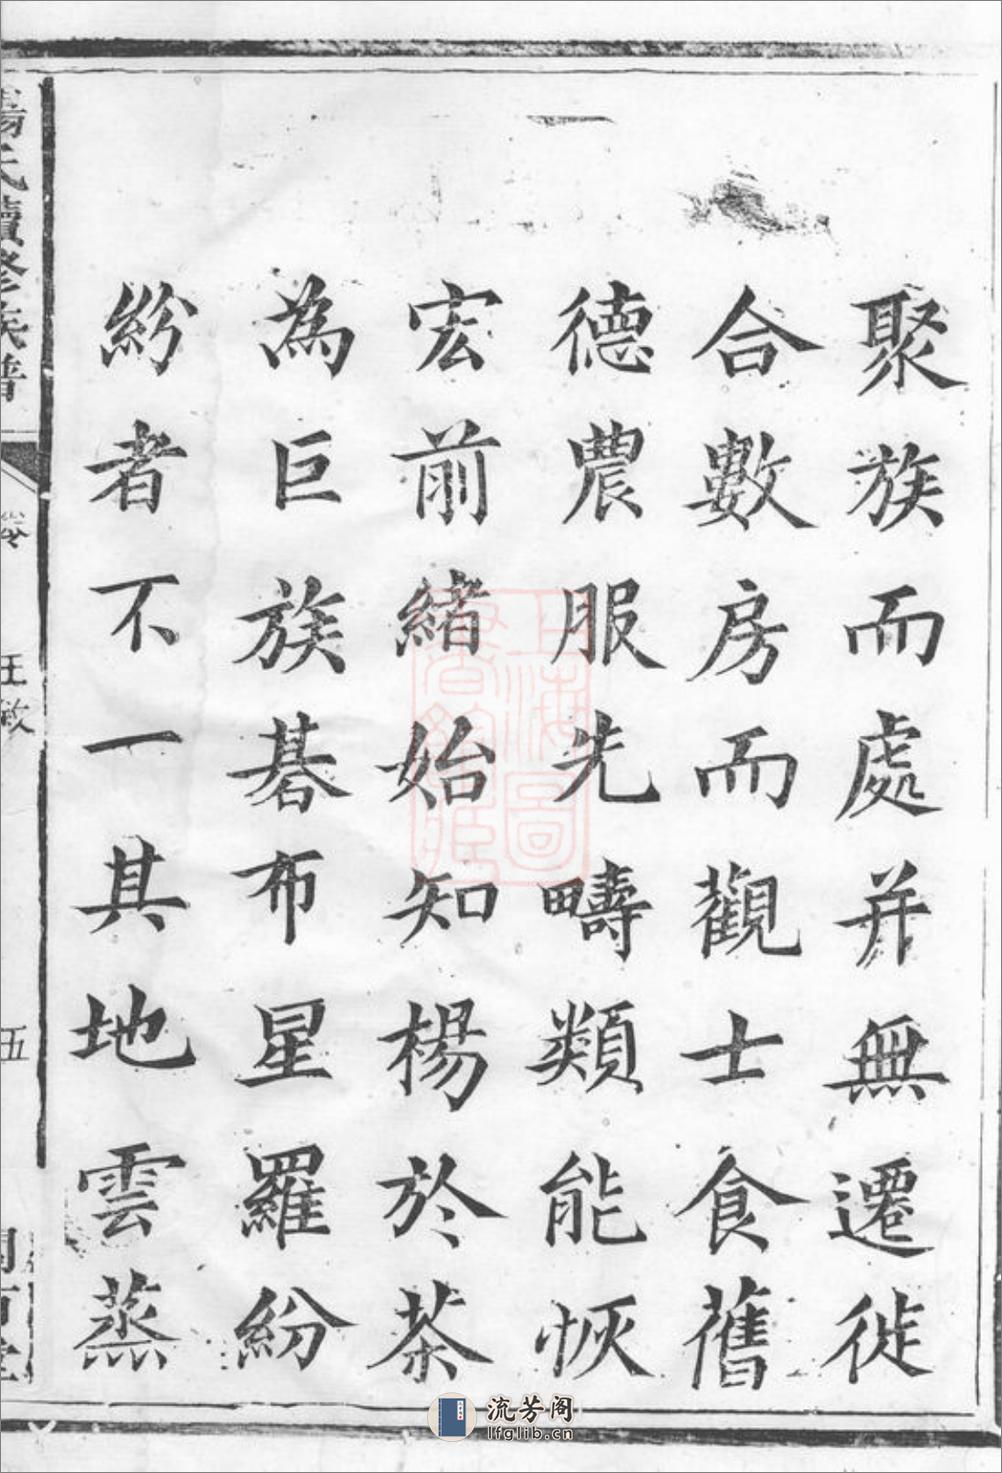 聚族而處并無遷徙
合數房而觀士食舊
德農服先疇類能恢
宏前緒始知楊於茶
為巨族碁布星羅紛
紛者不一其地雲蒸
楊氏續修族譜
卷
五
上海圖書館藏
流芳阁
lfglib.cn